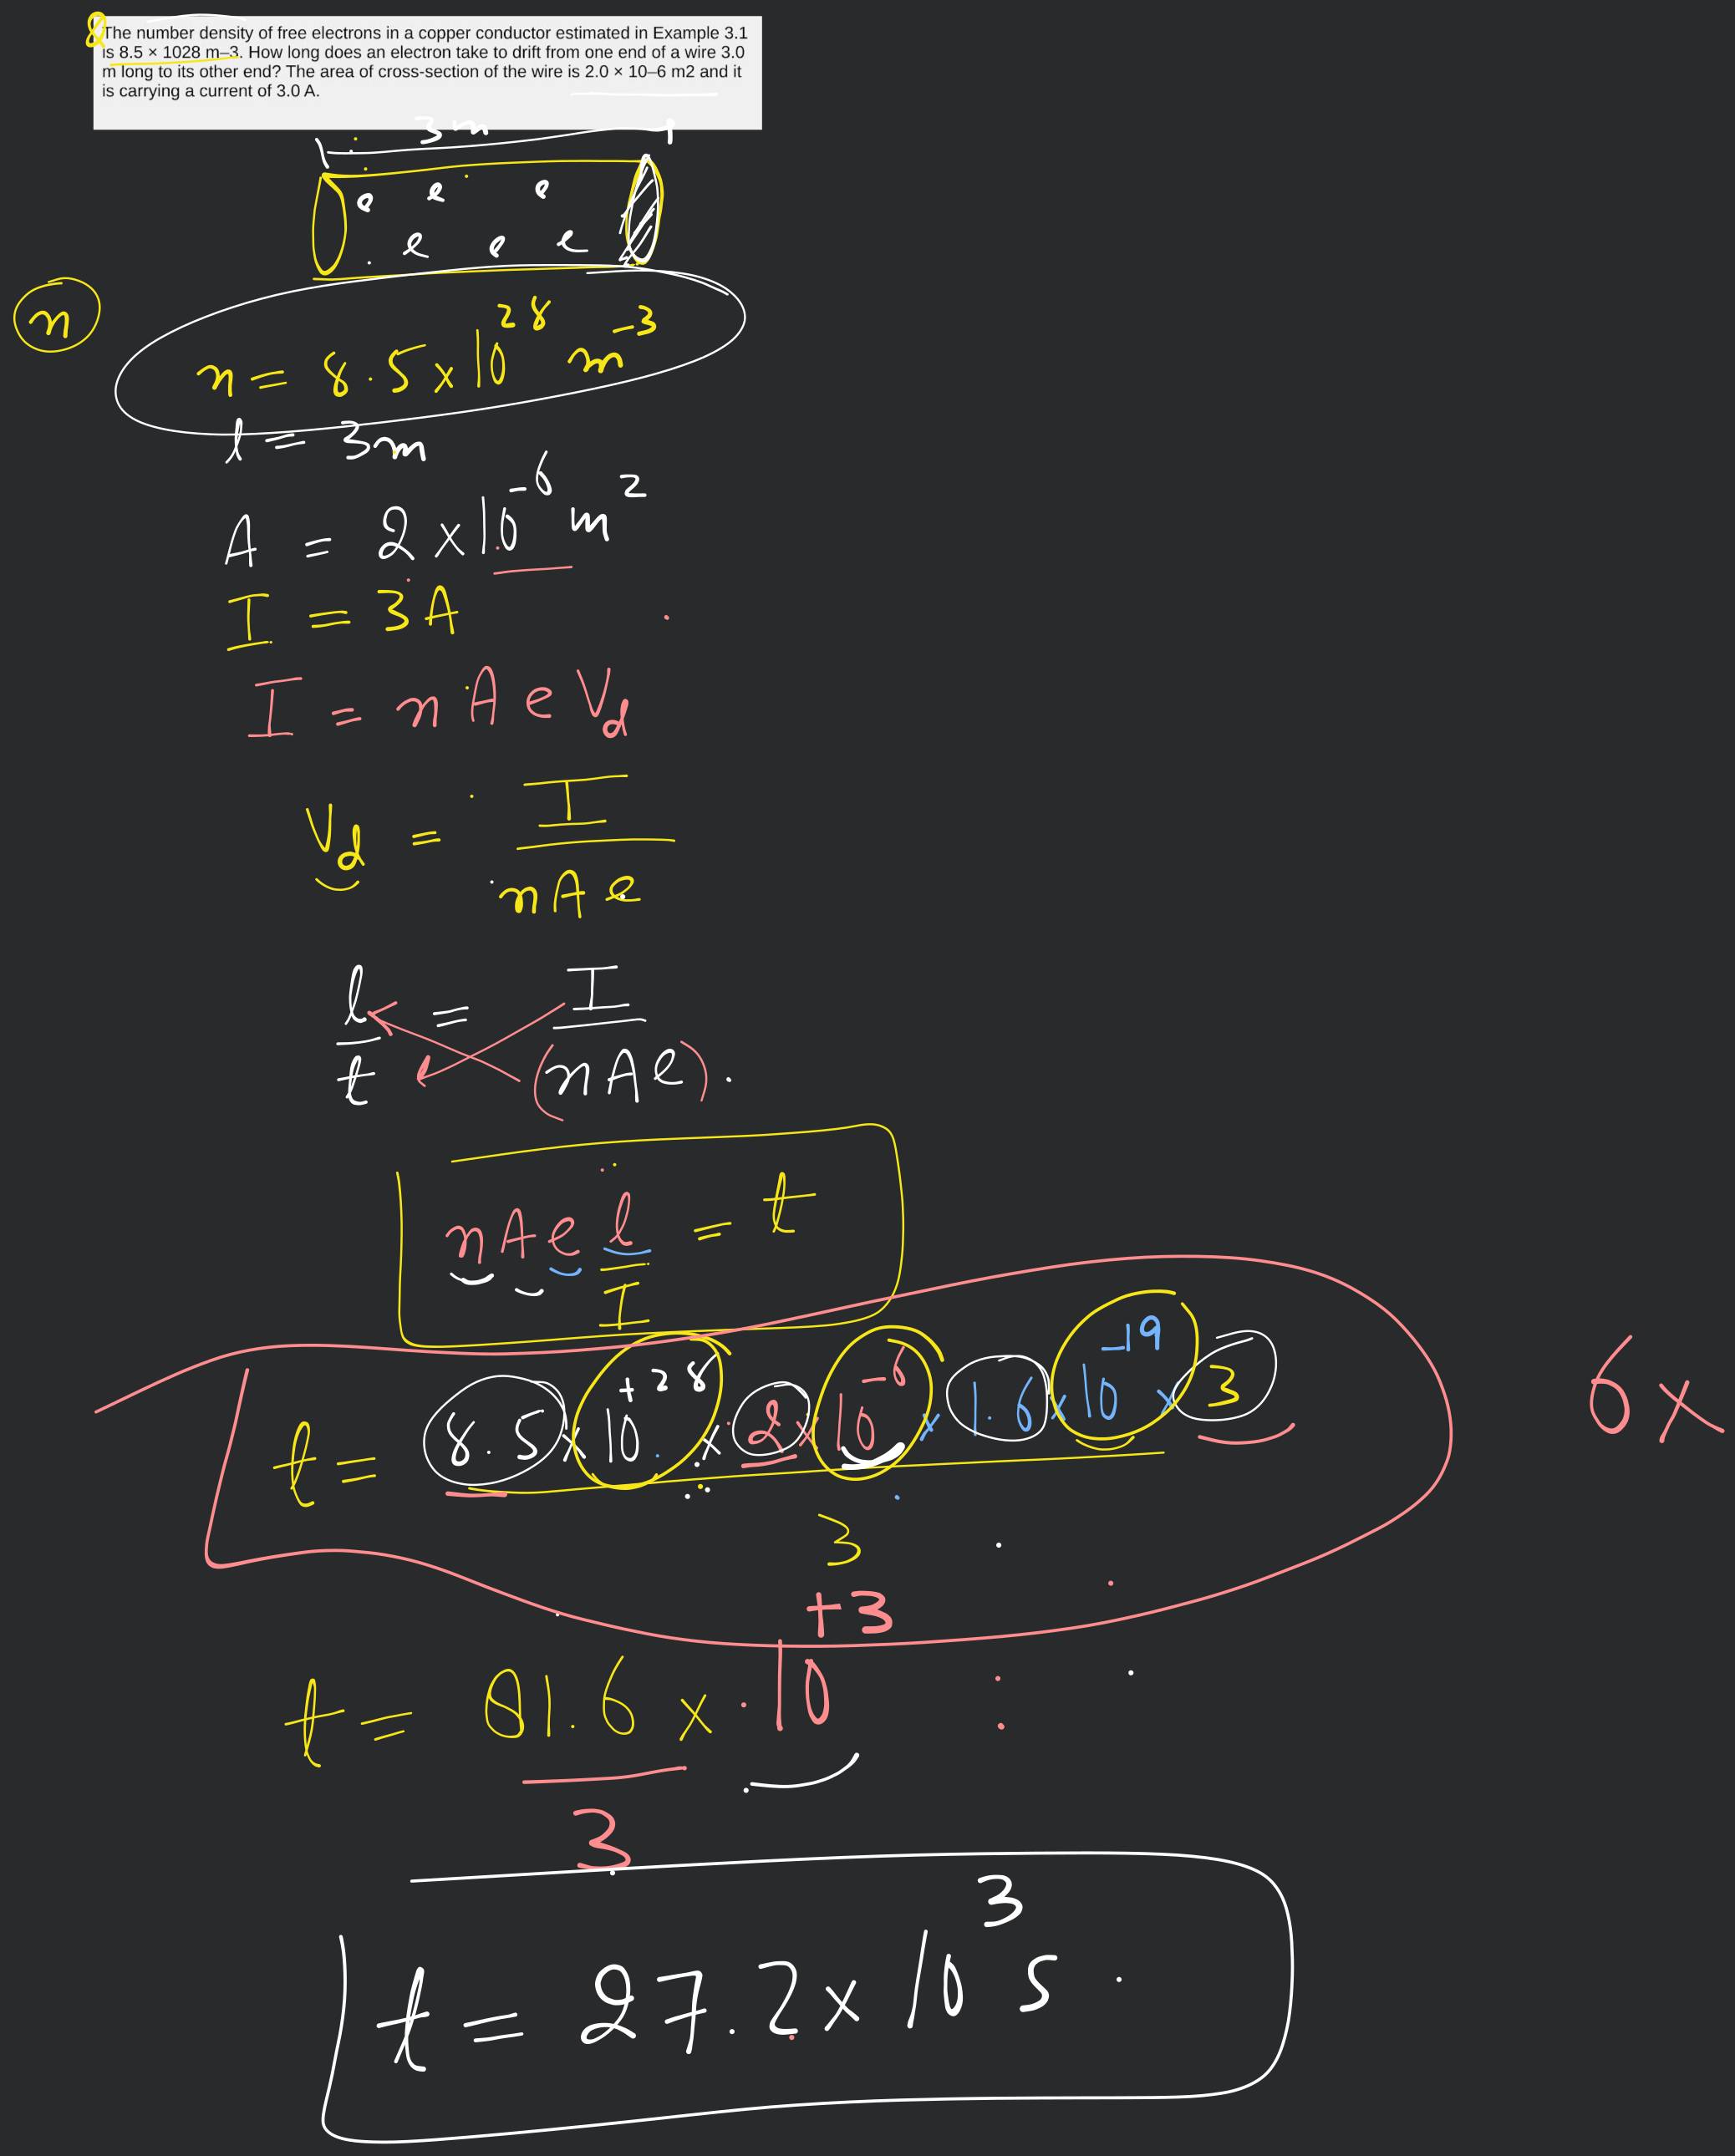 The number density of free electrons in a copper conductor estimated in Example 3.1
is 8.5 × 1028 m–3. How long does an electron take to drift from one end of a wire 3.0
m long to its other end? The area of cross-section of the wire is 2.0 × 10–6 m2 and it
is carrying a current of 3.0 A.
3m
e e e
e e e
n
n = 8.5 x 10^28 m^-3
l = 3m
A = 2 x 10^-6 m^2
I = 3A
I = nAeVd
Vd = I / nAe
l / t = I / (nAe).
nAel / I = t
t = 8.5 x 10^+28 x 2 x 10^-6 x 1.6 x 10^-19 x 3 / 3
6x
t = 81.6 x 10^+3 / 3
t = 27.2 x 10^3 s